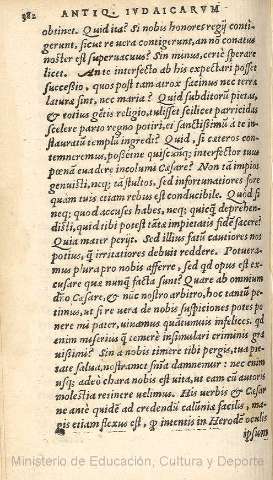 382 ANTIQ. IVDAICARVM
obtinet. Quid ita? Si nobis honores regij conti-
gerunt, sicut re vera contigerunt, an nō conatus
noster est supervacuus? Sin minus, certè sperare
licet. Ante interfecto ab his expectari posset
successio, quos post tam atrox facinus nec terra
latura sint, nec maria? Quid subditorū pietas,
& totius gētis religio, tulisset scilicet parricidas
scelere parto regno potiri, et sanctissimū a te in-
stauratū templū ingredi? Quid, si cæteros con-
temneremus, poßetne quiscunq; interfector tuus
pœnā euadere incolumi Cæsare? Non tā impios
genuisti, neq; tā stultos, sed infortunatiores fore
quàm tuis etiam rebus est conducibile. Quòd si
neq; quod accuses habes, neq; quicq̃ deprehen-
disti, quid tibi potest tātæ impietatis fidē facere?
Quia mater perijt. Sed illius fatū cautiores nos
potius, q̃ irritatiores debuit reddere. Potuera-
mus plura pro nobis afferre, sed qd opus est ex-
cusare quæ nunq̃ facta sunt? Quare ab omnium
dn̄o Cæsare, & nūc nostro arbitro, hoc tantū pe-
timus, ut si re vera de nobis suspiciones potes po
nere mi pater, vivamus quātumuis infelices. qd
enim miserius q̃ temerè insimulari criminis gra
uißimi? Sin à nobis timere tibi pergis, tua pie-
tate salua, nostramet sniā damnemur: nec enim
nsq; adeò chara nobis est vita, ut eam cū autoris
molestia resinere velimus. His verbis & Cæsar
ne antè quidē ad credendū calūniæ facilis, ma-
gis etiam flexus est, q̃ intentis in Herodē oculis
ipsum
Ministerio de Educación, Cultura y Deporte